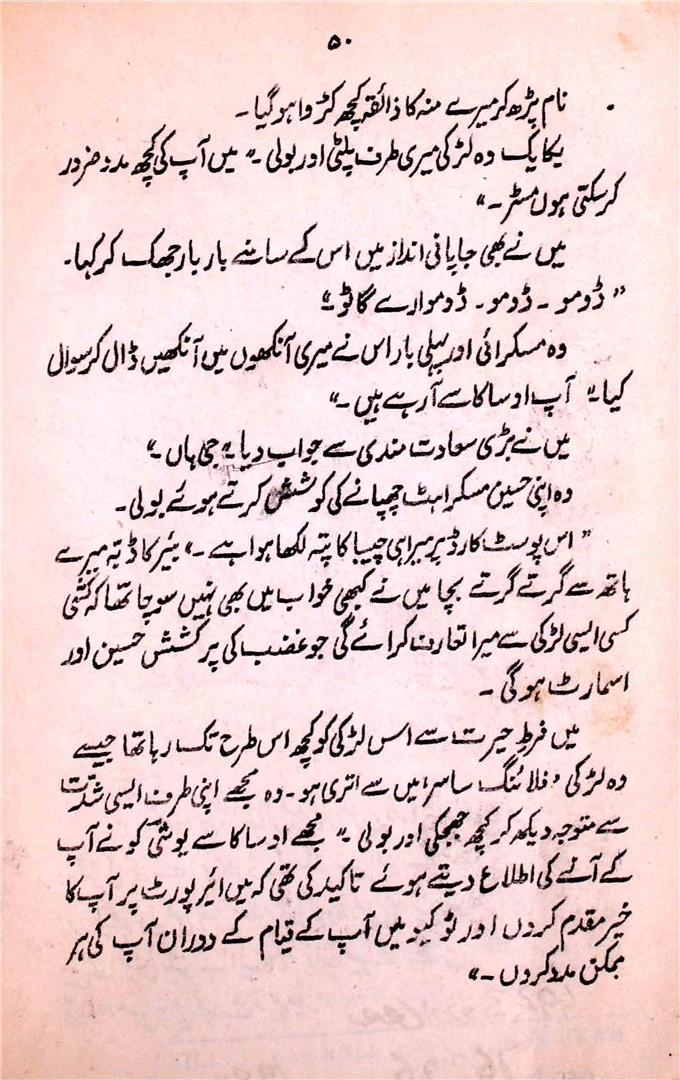 ۵۰
نام پڑھ کر میرے منہ کا ذائقہ کچھ کڑوا ہو گیا۔
یکایک وہ لڑکی میری طرف پلٹی اور بولی۔" میں آپ کی کچھ مدد ضرور
کر سکتی ہوں مسٹر۔"
میں نے بھی جاپانی انداز میں اس کے سامنے بار بار جھک کر کہا۔
" ڈومو۔ ڈومو۔ ڈوموارے گاٹو۔"
وہ مسکرائی اور پہلی بار اس نے میری آنکھوں میں آنکھیں ڈال کر سوال
کیا۔" آپ اوساکا سے آ رہے ہیں۔"
میں نے بڑی سعادت مندی سے جواب دیا۔" جی ہاں۔"
وہ اپنی حسین مسکراہٹ چھپانے کی کوشش کرتے ہوئے بولی۔
" اس پوسٹ کارڈ پر میرا ہی چیبا کا پتہ لکھا ہوا ہے۔" بیئر کا ڈبہ میرے
ہاتھ سے گرتے گرتے بچا میں نے کبھی خواب میں بھی نہیں سوچا تھا کہ
کسی ایسی لڑکی سے میرا تعارف کرائے گی جو غضب کی پرکشش حسین اور
اسمارٹ ہو گی۔
میں فرطِ حیرت سے اس لڑکی کو کچھ اس طرح تک رہا تھا جیسے
وہ لڑکی 'فلائنگ ساسر' میں سے اتری ہو۔ وہ مجھے اپنی طرف ایسی شدّت
سے متوجہ دیکھ کر کچھ جھجکی اور بولی۔" مجھے اوساکا سے یوشی کو نے آپ
کے آنے کی اطلاع دیتے ہوئے تاکید کی تھی کہ میں ائیر پورٹ پر آپ کا
خیر مقدم کروں اور ٹوکیو میں آپ کے قیام کے دوران آپ کی ہر
ممکن مدد کروں۔"